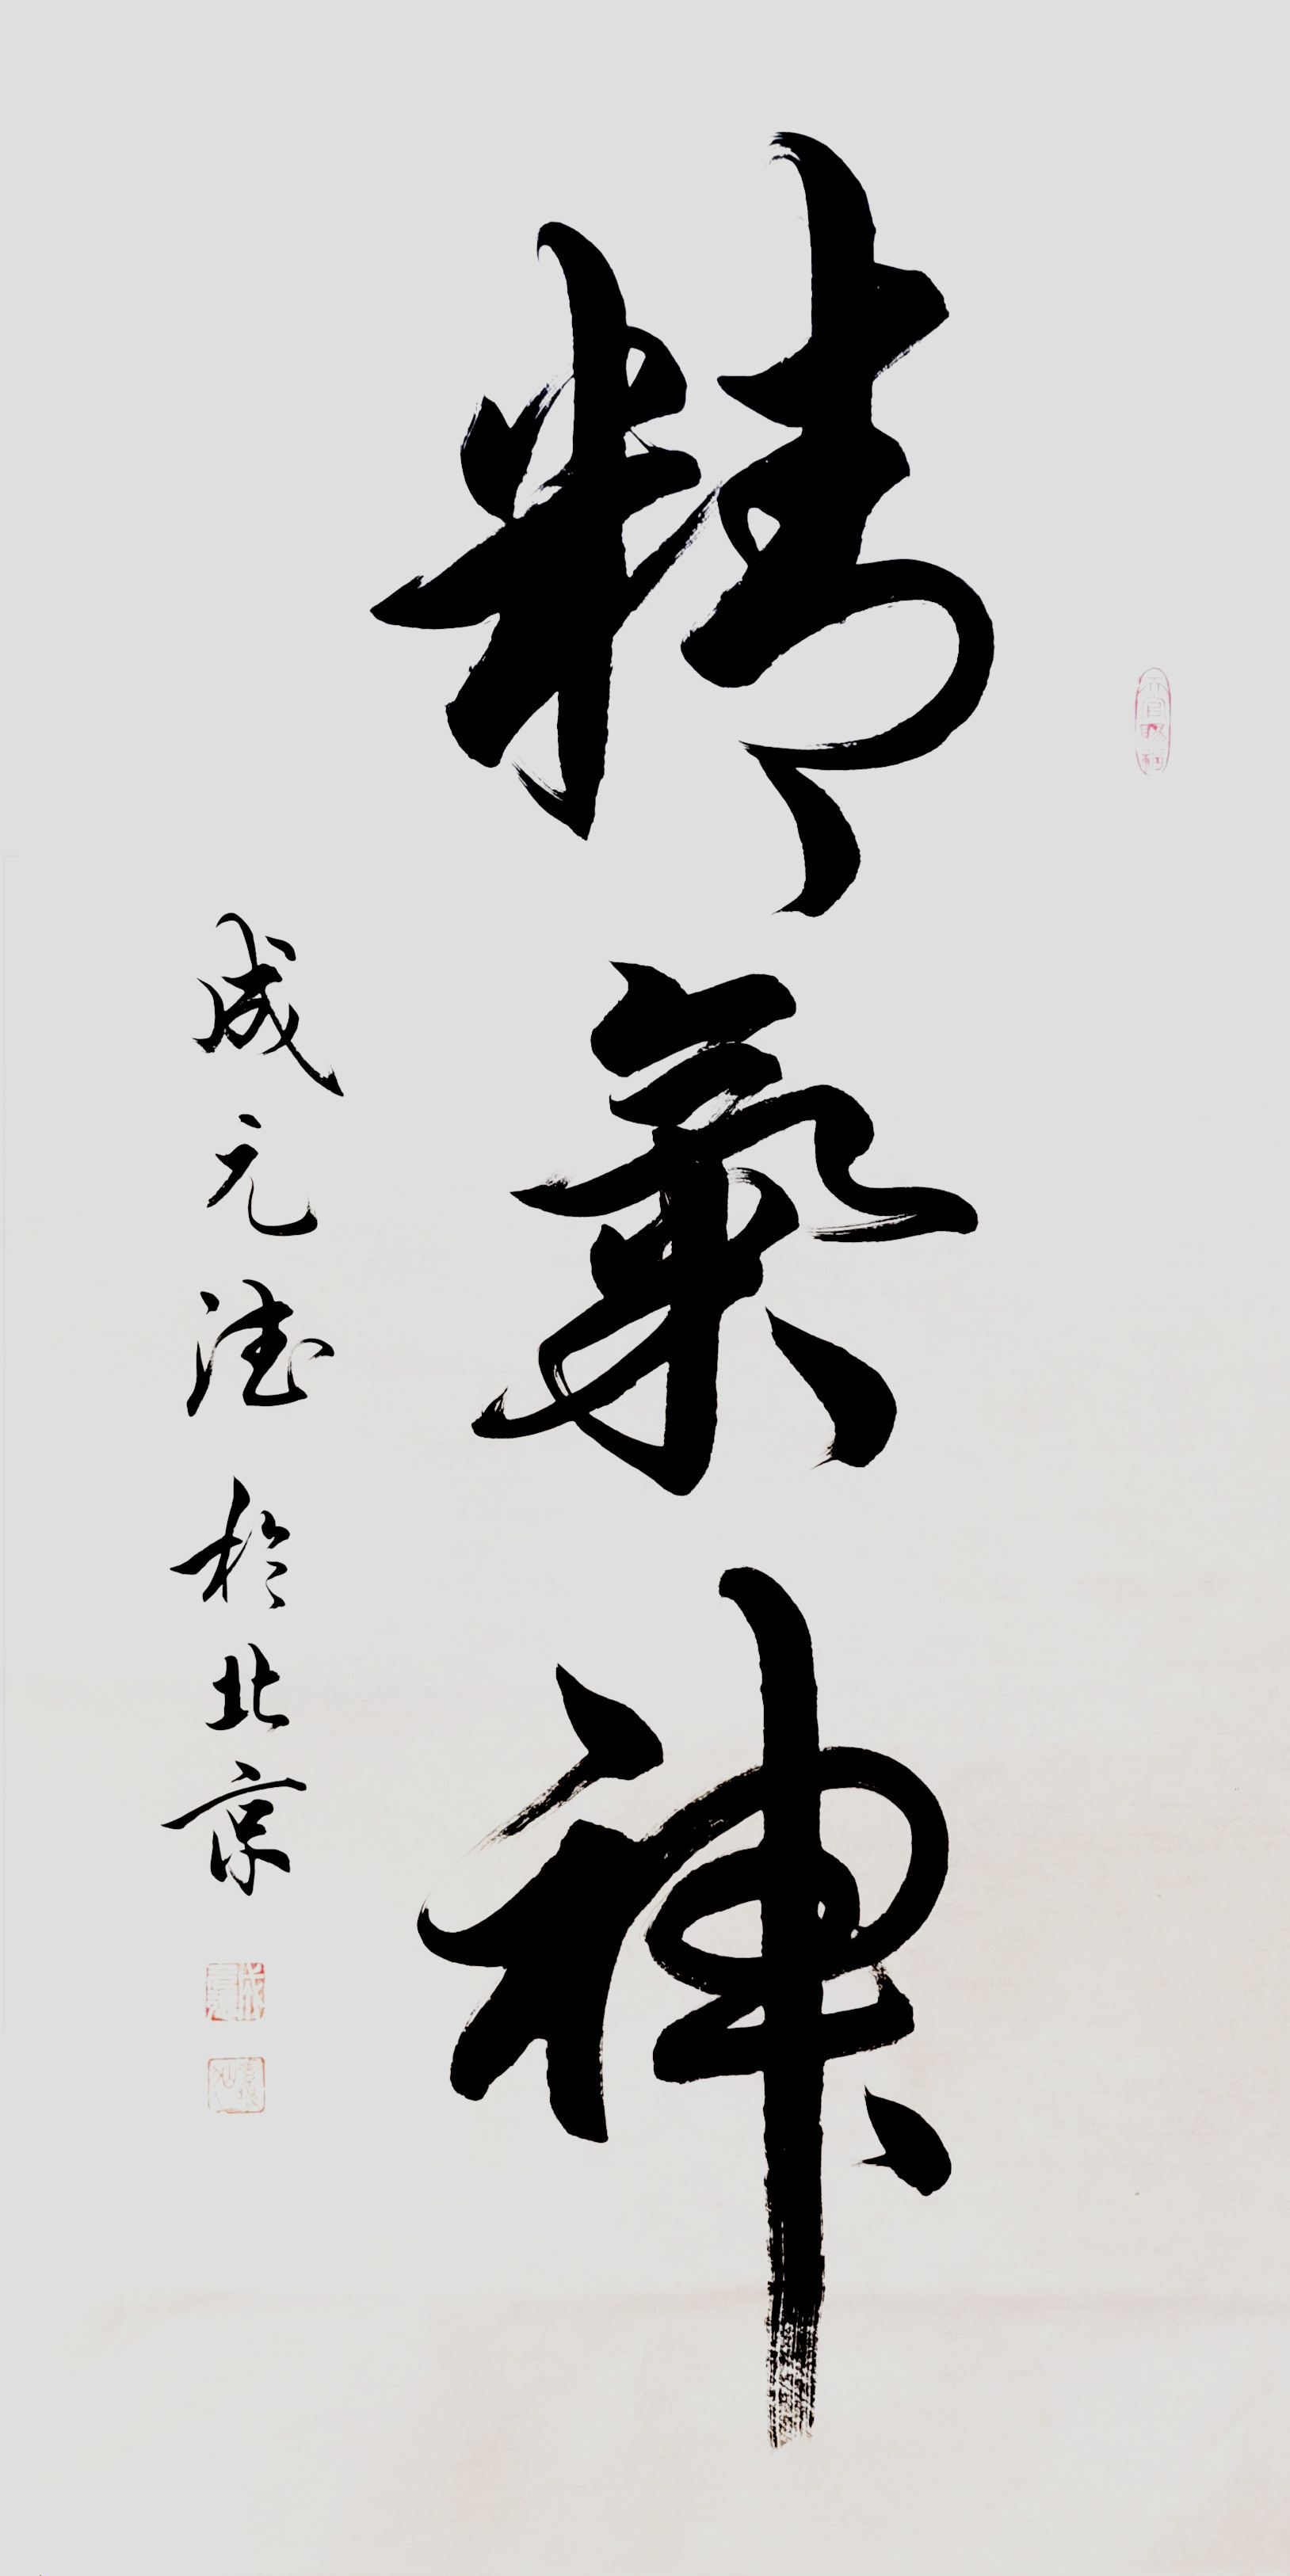 精氣神
成元德於北京